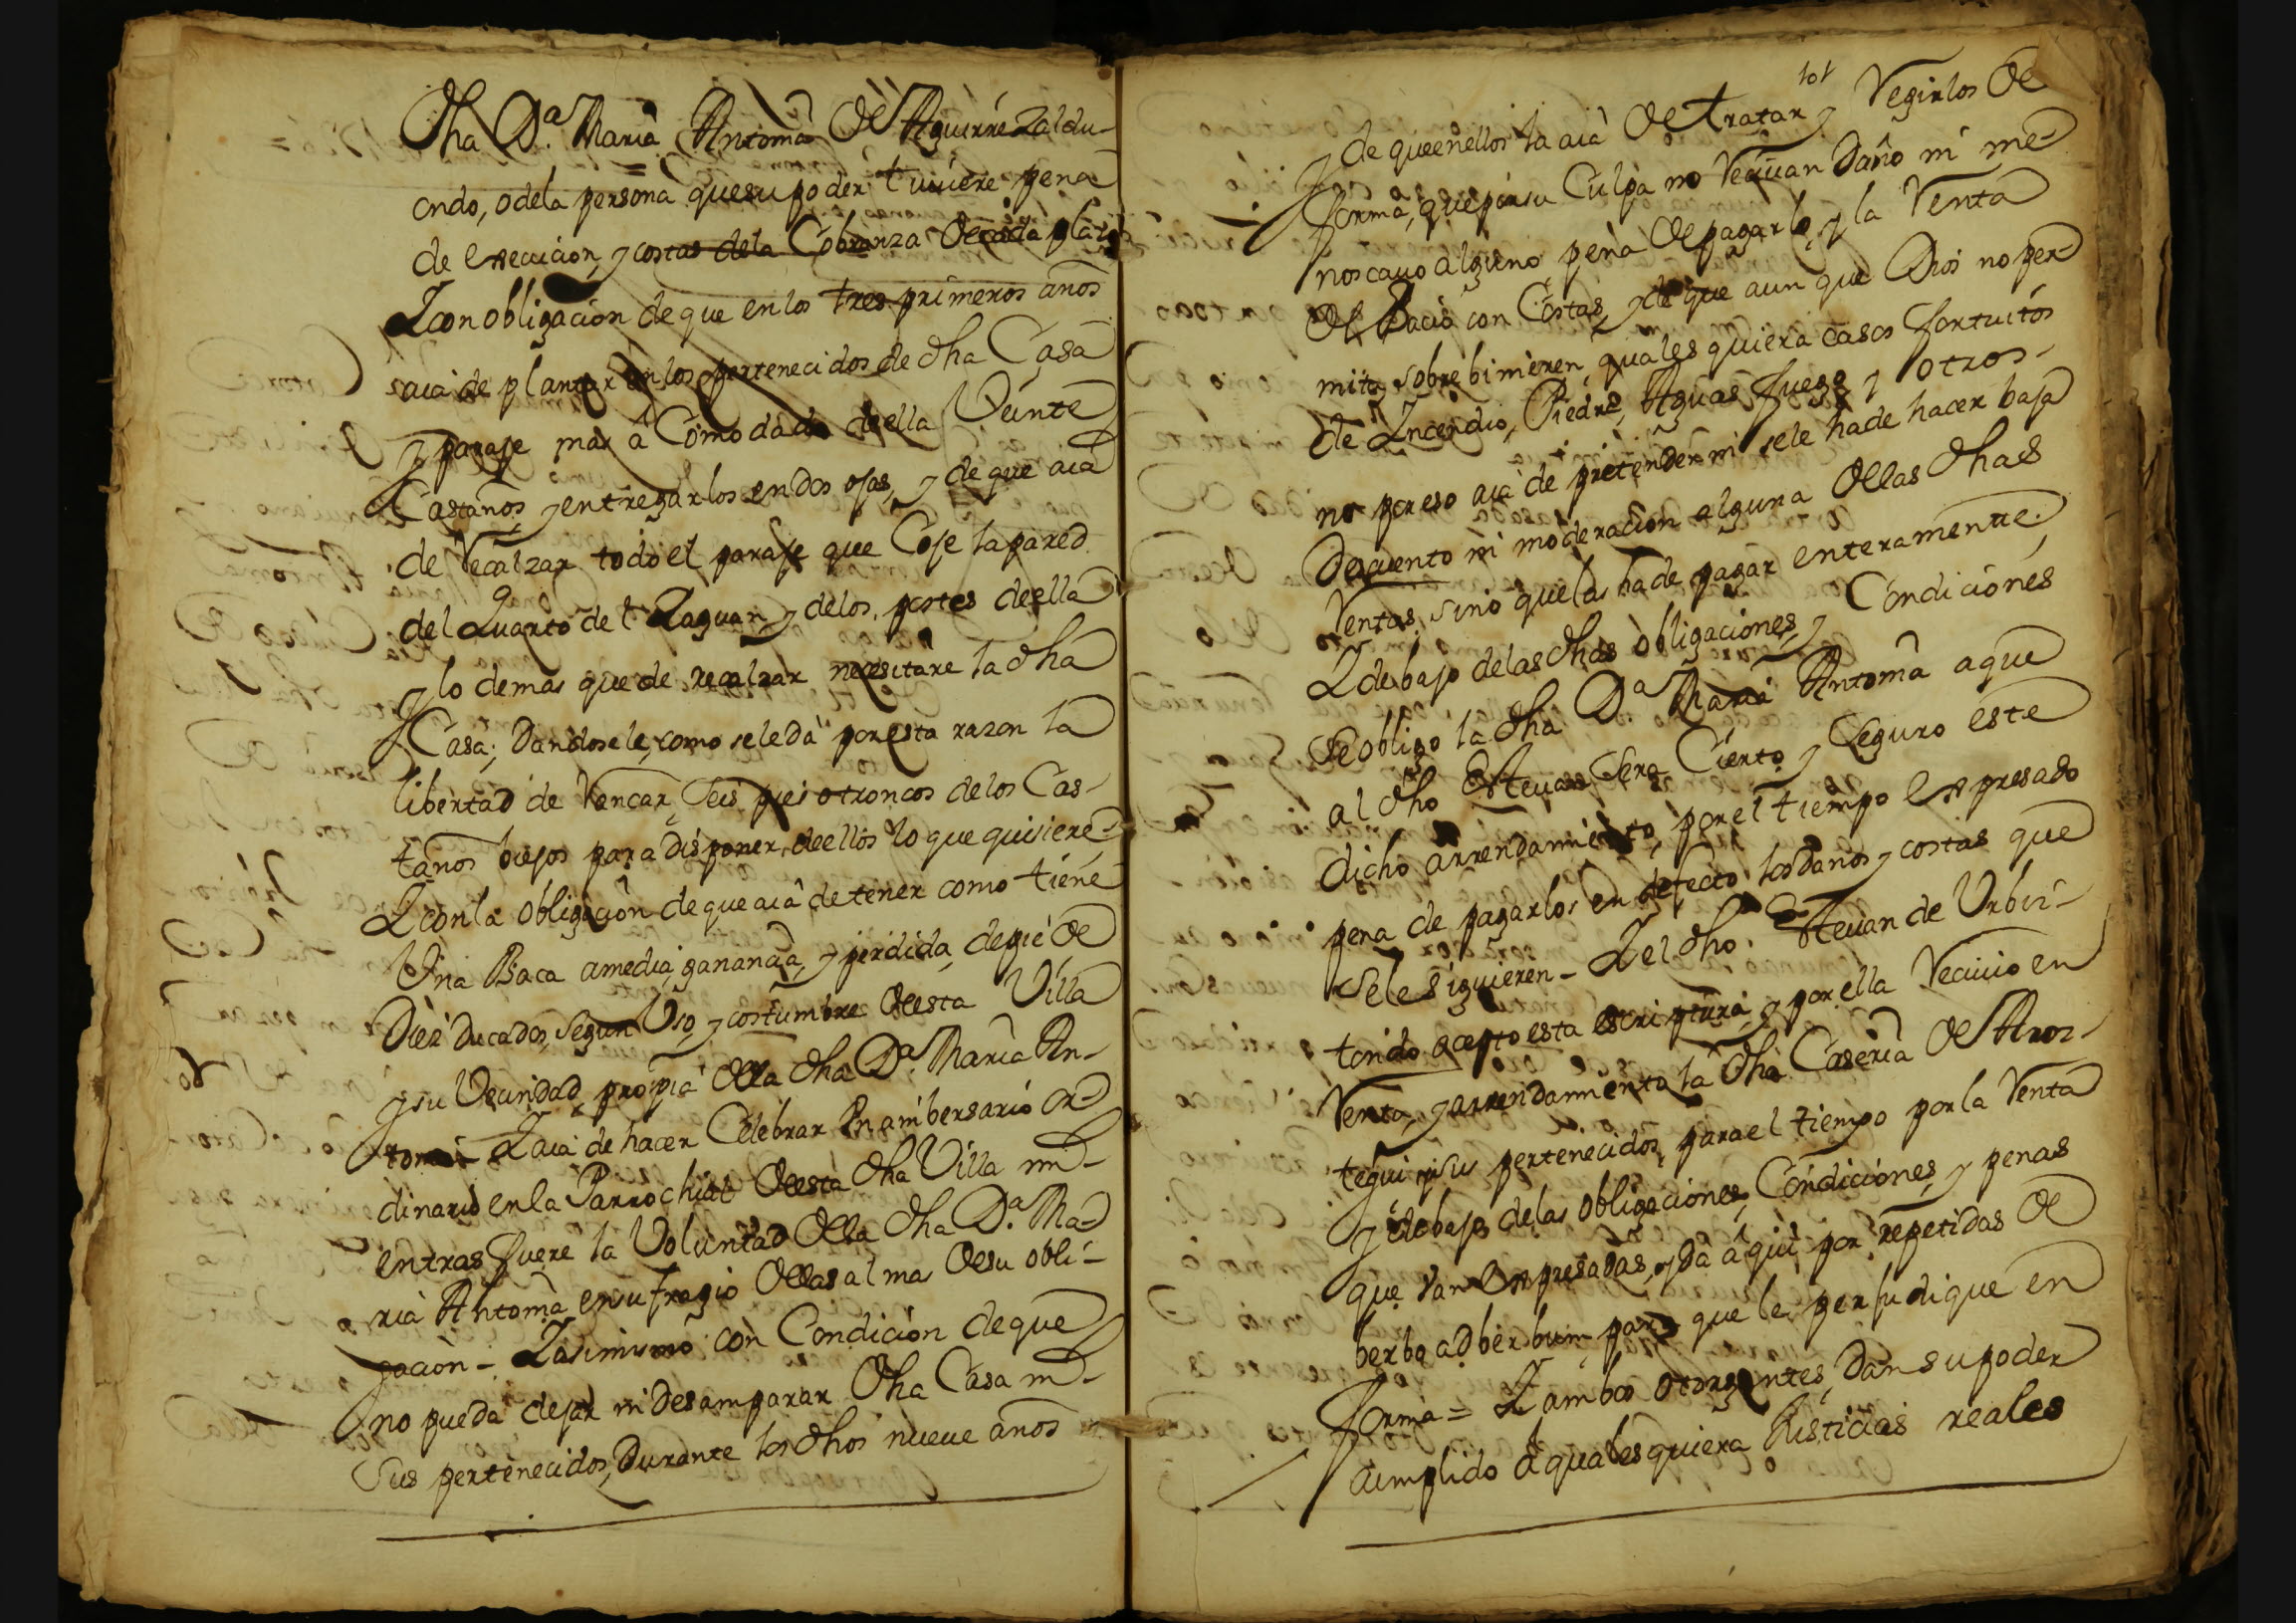 Dha Da. Maria Antonia De Aguirre Zaldu-
ondo, o dela persona quesu poder tuuiere pena
de execucion, y costas dela Cobranza De cada plazo
Y con obligacion de que en los tres primeros años
aia de plantar en los pertenecidos de dha Casa
y paraje mas â Comodado de ella Veinte
Castaños, y entregarlos en dos ojas, y de que aia
de Recalzar todo el paraje que Coje la pared
del Quarto del Zaguan, y delos postes de ella
y lo demas que de recalzar necesitare la dha
Casa; Dandosele, como sele dá por esta razon la
libertad de Rancar, Seis pies o troncos de los Cas-
taños biejos para disponer, de ellos lo que quisiere
Y con la obligacion de que aia de tener como tiene
Vna Baca amedia, ganancia, y perdida, de pie de
Diez Ducados, segun Vso, y costumbre de esta Villa
y su Vecindad, propia de la dha Da. Maria An-
tonia - Y aia de hacer Celebrar Vn anibersario or-
dinario en la Parrochial de esta dha Villa mi-
entras fuere la Voluntad de la dha Da. Ma-
ria Antonia en sufragio de las almas de su obli-
gacion - Y asimismo con Condicion de que
no pueda dejar ni Desamparar dha Casa ni
Sus pertenecidos, Durante los dhos nueue años
101
y de queenellos la aia de tratar y Regirlos de
forma, que por su Culpa no Reciuan Daño ni me-
noscauo alguno, pena de pagarlo, y la Renta
de Bacio con Costas, y de que aun que Dios no per-
mita, sobrebinieren, quales quiera casos fortuitos
de Incendio, Piedra, Aguas, fuego, y otros-
no por eso aia de pretender ni sele hade hacer baja
Descuento ni moderacion alguna de las dhas
Rentas, sino que las hade pagar enteramente.
Y debajo de las dhas obligaciones, y Condiciones
se obligo la dha Da Maria Antonia a que
al dho Esteuan, sera Cierto, y Seguro este
dicho arrendamiento, por el tiempo expresado
pena de pagarlos en defecto los daños, y costas que
se le siguieren - Y el dho Esteuan de Vrbiz-
tondo acepto esta escriptura, y por ella Reciuio en
Renta, y arrendamiento la dha Caseria de Aroz-
tegui y sus pertenecidos, para el tiempo por la Renta
y debajo de las obligaciones, Condiciones, y penas
que van expresadas, y da aqui por repetidas de
berbo ad berbum, para que le perjudique en
forma = Y ambos otorgantes, Dan su poder
cumplido a quales quiera Justicias reales